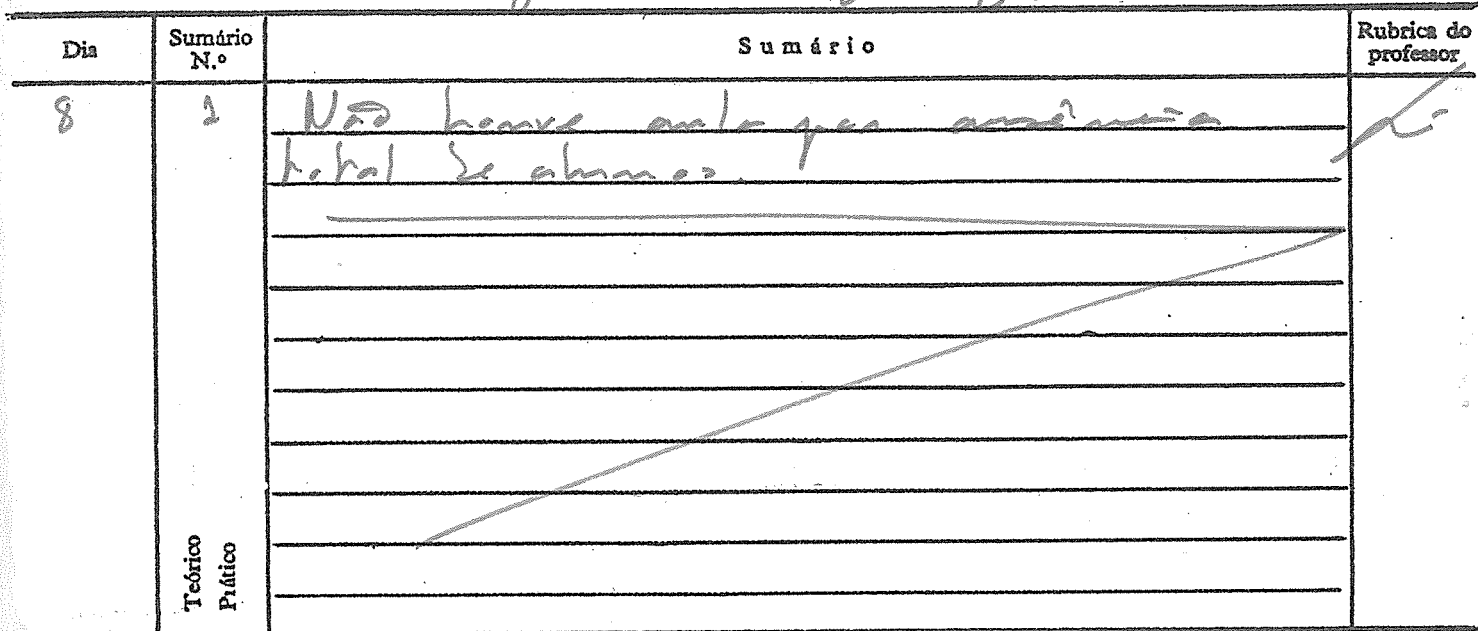 Dia
Sumário N.º
Sumário
Rubrica do professor
8
1
Não houve aula por ausência
total de alunos.
Teórico
Prático